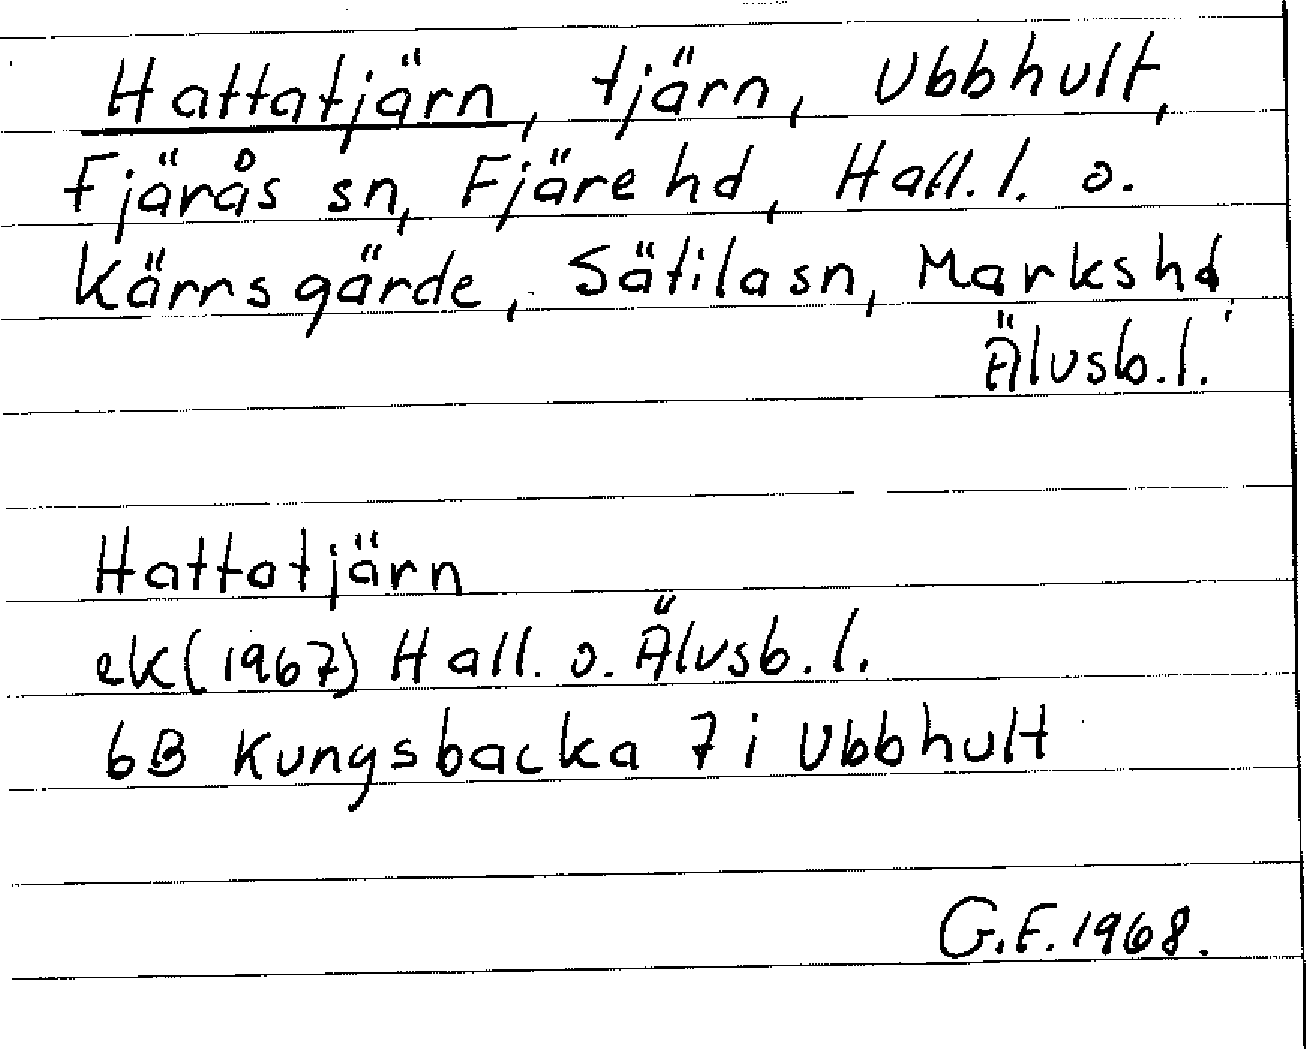 Hattatjärn, tjärn, Ubbhult,
Fjärås sn, Fjäre hd, Hall. l. o.
Kärrsgärde, Sätila sn, Marks hd,
Älvsb. l.
Hattatjärn
ek (1967) Hall. o. Älvsb. l.
6B Kungsbacka 7i Ubbhult
G.F. 1968.